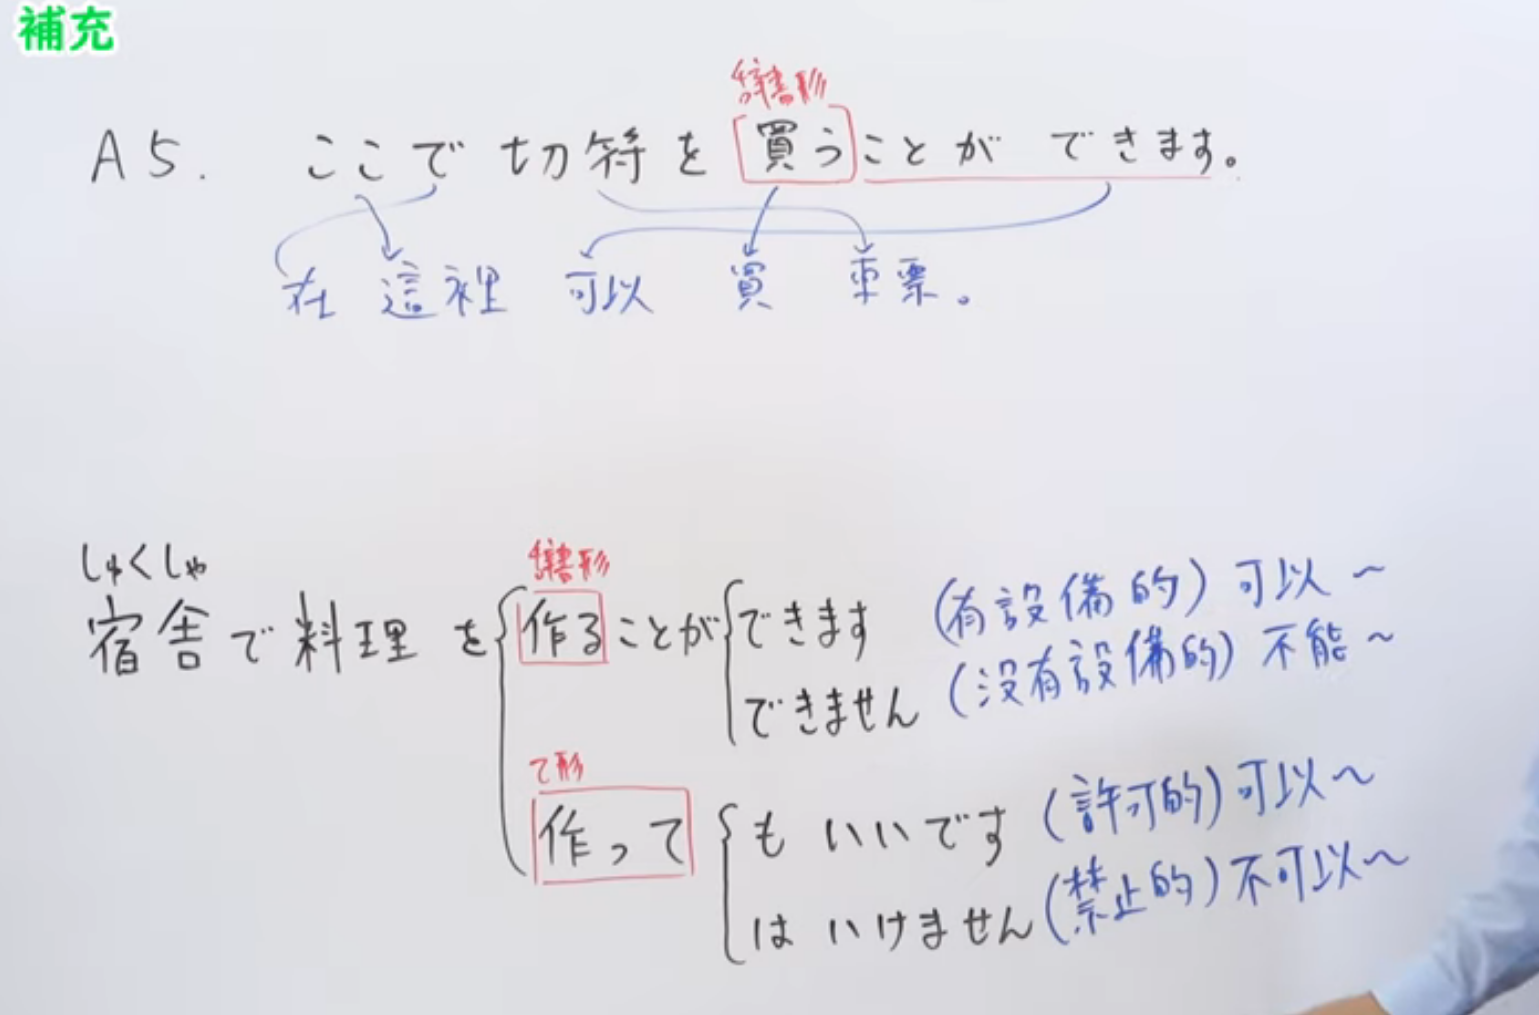 補充
辞書形
A5. ここで切符を買うことができます。
在這裡可以買車票。
しゅくしゃ
辞書形
宿舎で料理を作ることができます (有設備的) 可以～
できません (没有設備的) 不能～
て形
作ってもいいです (許可的) 可以～
はいけません (禁止的) 不可以～